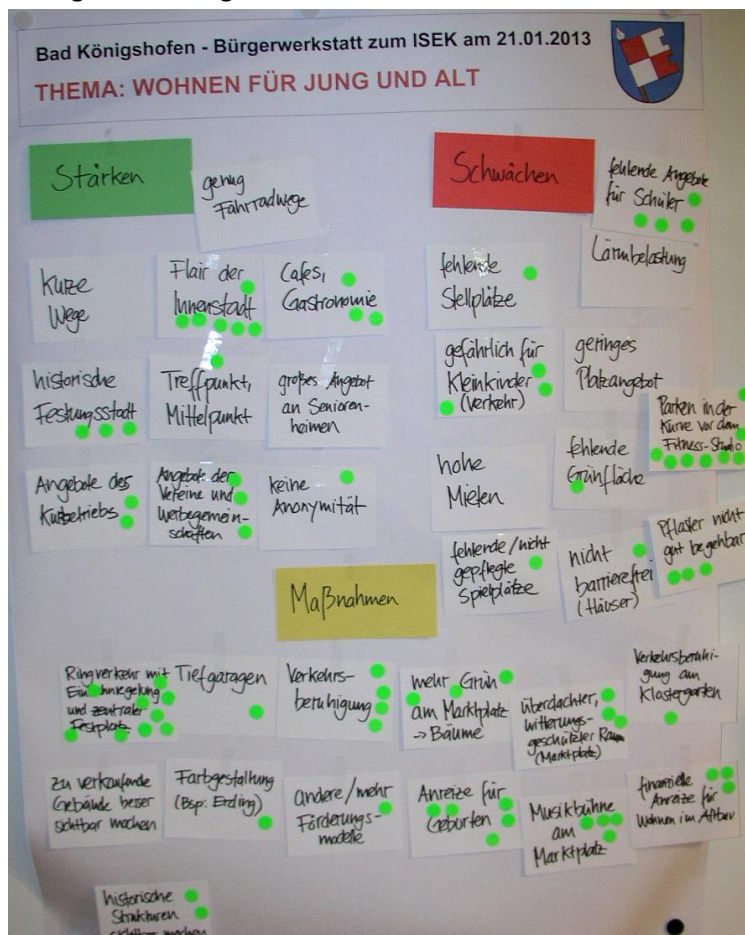 Bad Königshofen - Bürgerwerkstatt zum ISEK am 21.01.2013
THEMA: WOHNEN FÜR JUNG UND ALT
Stärken
genug
Fahrradwege
Kurze
Wege
Flair der
Innenstadt
Cafes,
Gastronomie
historische
Festungsstadt
Treffpunkt,
Mittelpunkt
großes Angebot
an Senioren-
heimen
Angebote des
Kurbetriebs
Angebote der
Vereine und
Werbegemein-
schaften
keine
Anonymität
Schwächen
fehlende Angebote
für Schüler
Lärmbelastung
fehlende
Stellplätze
gefährlich für
Kleinkinder
(Verkehr)
geringes
Platzangebot
Parken in der
Kurve vor dem
Fitness-Studio
hohe
Mieten
fehlende
Grünfläche
fehlende/nicht
gepflegte
Spielplätze
nicht
barrierefrei
(Häuser)
Pflaster nicht
gut begehbar
Maßnahmen
Ringverkehr mit
und zentraler
Festplatz
Tiefgaragen
Verkehrs-
beruhigung
mehr Grün
am Marktplatz
-> Bäume
überdachter,
witterungs-
geschützter Raum
(Marktplatz)
Verkehrsberuhi-
gung am
Klostergarten
zu verkaufende
Gebäude besser
sichtbar machen
Farbgestaltung
(Bsp: Erding)
andere/mehr
Förderungs-
modelle
Anreize für
Geburten
Musikbühne
am
Marktplatz
finanzielle
Anreize für
Wohnen im Altbau
historische
Strukturen
sichtbar machen